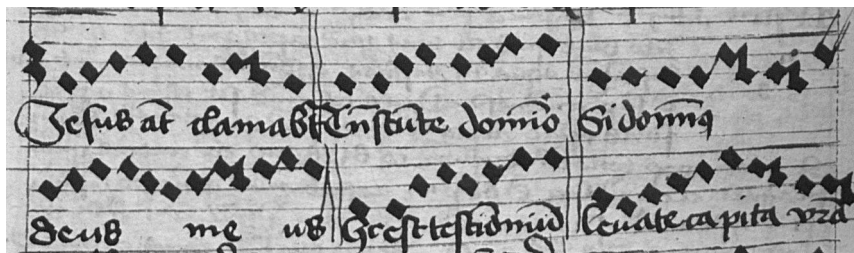 Jesus at̄ clamabat Cūstute domīo Si domīꝰ
deus me us Hec est testīoniū leuate capita vr̄a